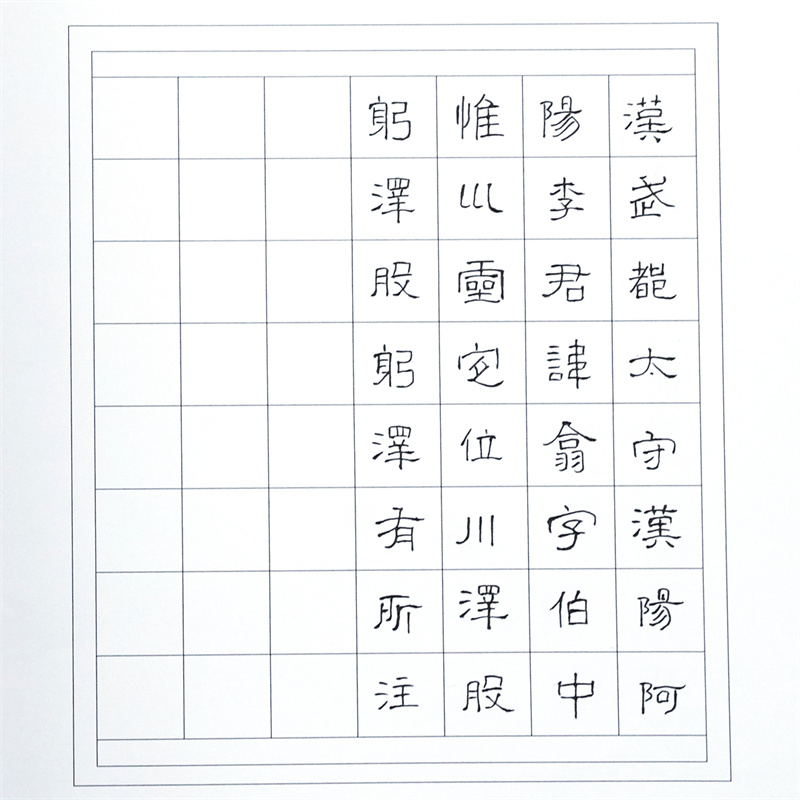 漢武都太守漢陽阿
陽李君諱翕字伯中
惟巛靈定位川澤股
躬澤股躬澤有所注